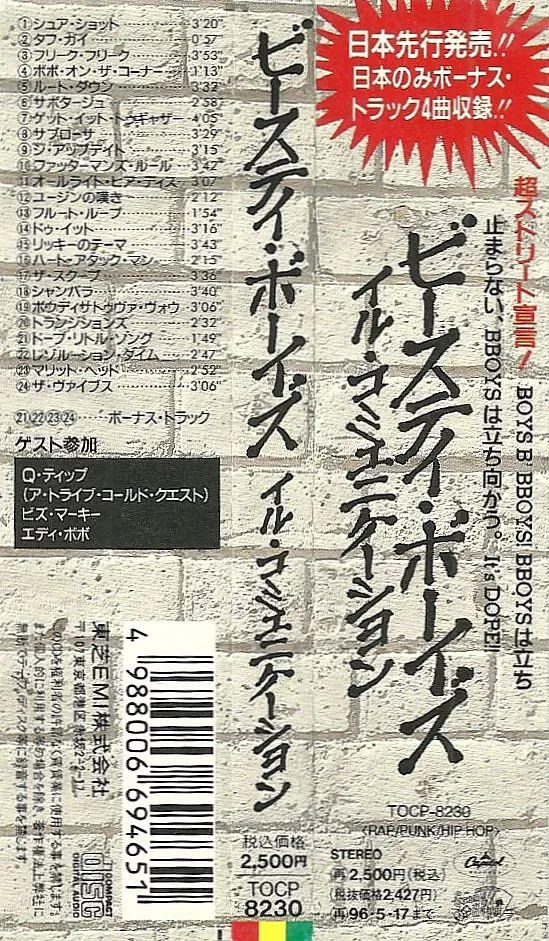 ①シュア・ショット 3'20"
②タフ・ガイ 0'57"
③フリーク・フリーク 3'53"
④ボボ・オン・ザ・コーナー 1'13"
⑤ルート・ダウン 3'32"
⑥サボタージュ 2'58"
⑦ゲット・イット・トゥギャザー 4'05"
⑧サブローサ 3'29"
⑨ジ・アップデイト 3'15"
⑩ファッターマンズ・ルール 3'42"
⑪オールライト・ヒア・ディス 3'07"
⑫ユージンの嘆き 2'12"
⑬フルート・ループ 1'54"
⑭ドゥ・イット 3'16"
⑮リッキーのテーマ 3'43"
⑯ハート・アタック・マン 2'15"
⑰ザ・スクープ 3'36"
⑱シャンバラ 3'40"
⑲ボウディサトゥヴァ・ヴォウ 3'06"
⑳トランジションズ 2'32"
㉑ドープ・リトル・ソング 1'49"
㉒レゾルーション・タイム 2'47"
㉓マリット・ヘッド 2'52"
㉔ザ・ヴァイブス 3'06"
㉑㉒㉓㉔……ボーナス・トラック
ゲスト参加
Q・ティップ
(ア・トライブ・コールド・クエスト)
ビズ・マーキー
エディ・ボボ
東芝EMI株式会社
〒107東京都港区赤坂2-2-17
このCDを権利者の許諾なく賃貸業に使用する事を禁じます。
また個人的に利用する等の場合を除き、著作権法上弊社に
無断でテープ、ディスク等に録音する事を禁じます。
4 988006 694651
COMPACT
disc
DIGITAL AUDIO
ビースティ・ボーイズ イル・コミュニケーション
税込価格
2,500円
TOCP
8230
日本先行発売!!
日本のみボーナス・
トラック4曲収録!!
超ストリート宣言! BOYS B' BBOYS! BBOYSは立ち
止まらない、BBOYSは立ち向かう。It's DOPE!!
ビースティ・ボーイズ
イル・コミュニケーション
TOCP-8230
<RAP/PUNK/HIP HOP>
STEREO
再2,500円(税込)
(税抜価格2,427円)
再96・5・17まで
Capitol